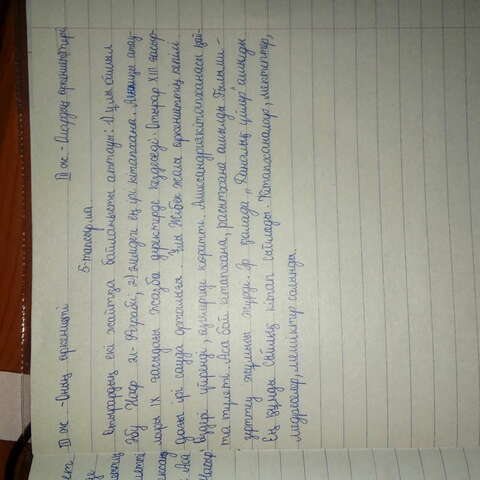 II ж - Оның өркениеті III ж - Олардың өркениеттері
5-тапсырма
Отырардың екі жайтқа байланысты аттауы: 1) ұлы ғалым
Әбу Наср әл-Фараби, 2) әлемдегі ең ірі кітапхана. Алғашқы атау-
лары IX ғасырдағы жазба деректерде кездеседі. Отырар XIII ғасыр-
дағы ірі сауда орталығы. Ұлы Жібек жолы өркениеттің кепілі
Өздері үйренді, өзгелерге таратты. Александрия кітапханасы қай-
та түлеті. Аса бай кітапхана, расытхана ашылды Ғылыми-
зерттеу жұмысы жүрді. Әр қалада „Даналық үйлері" ашылды
Ең құнды сыйлық кітап сыйлады. Кітапханалар, мектептер,
медреселер, мешіттер салынды.